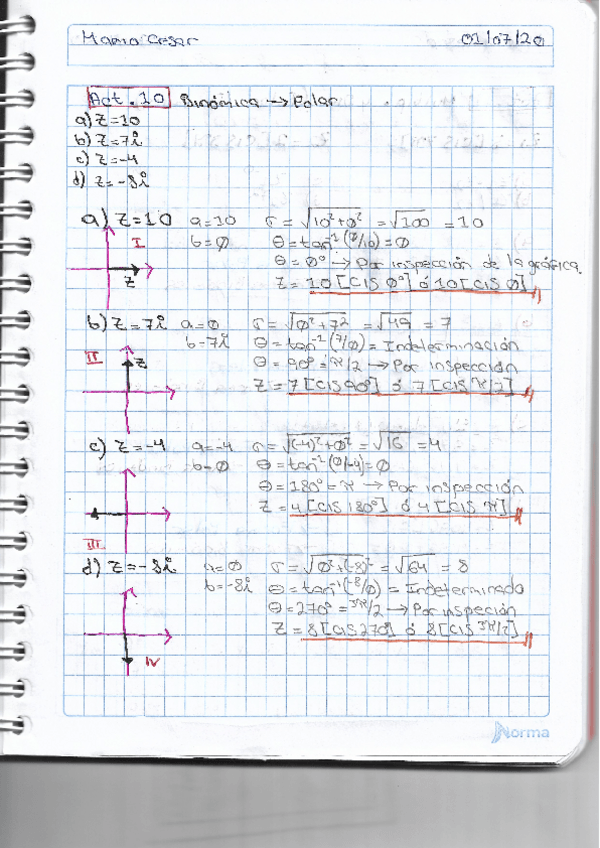 Mario Cesar 01/07/20
Act. 10 Binómica → Polar
a) Z=10
b) Z=7i
c) Z=-4
d) Z=-8i
a) Z=10 a=10 r = √10²+0² = √100 = 10
I b=0 θ = tan⁻¹(0/10) = 0
θ = 0° → Por inspección de la gráfica
Z Z = 10 [CIS 0°] ó 10 [CIS 0]
b) Z=7i a=0 r = √0²+7² = √49 = 7
b=7i θ = tan⁻¹(7/0) = Indeterminación
II Z θ = 90° = π/2 → Por inspección
Z = 7 [CIS 90°] ó 7 [CIS π/2]
c) Z=-4 a=-4 r = √(-4)²+0² = √16 = 4
b=0 θ = tan⁻¹(0/-4) = 0
θ = 180° = π → Por inspección
Z = 4 [CIS 180°] ó 4 [CIS π]
III
d) Z=-8i a=0 r = √0²+(-8)² = √64 = 8
b=-8i θ = tan⁻¹(-8/0) = Indeterminado
θ = 270° = 3π/2 → Por inspeción
Z = 8 [CIS 270°] ó 8 [CIS 3π/2]
IV
Norma